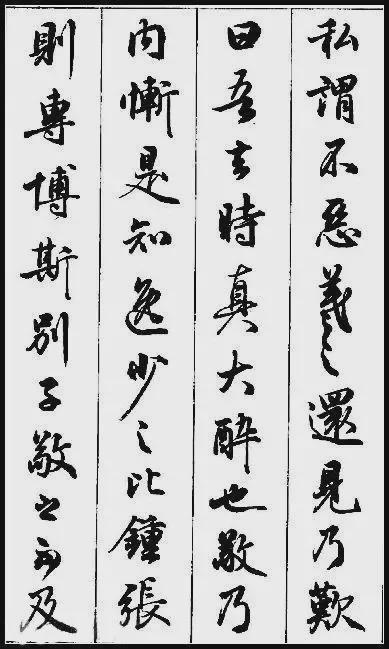 私謂不惡羲之還見乃歎
曰吾去時真大醉也敬乃
內慚是知逸少之比鍾張
則專博斯別子敬之不及